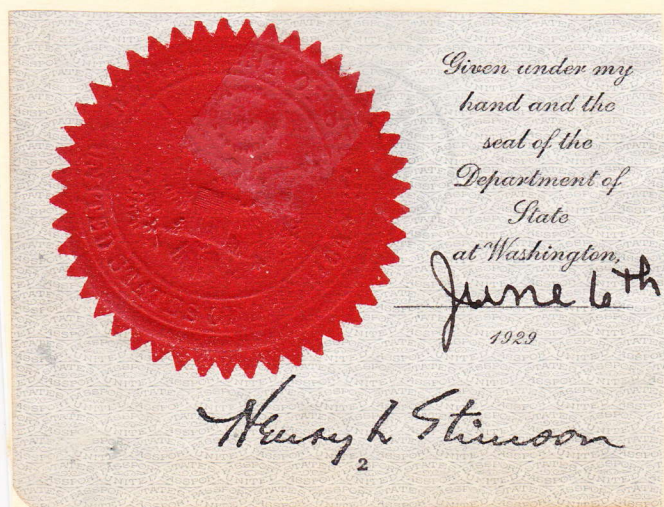 Given under my
hand and the
seal of the
Department of
State
at Washington,
June 6th
1929
Henry L Stimson
2
UNITED STATES OF